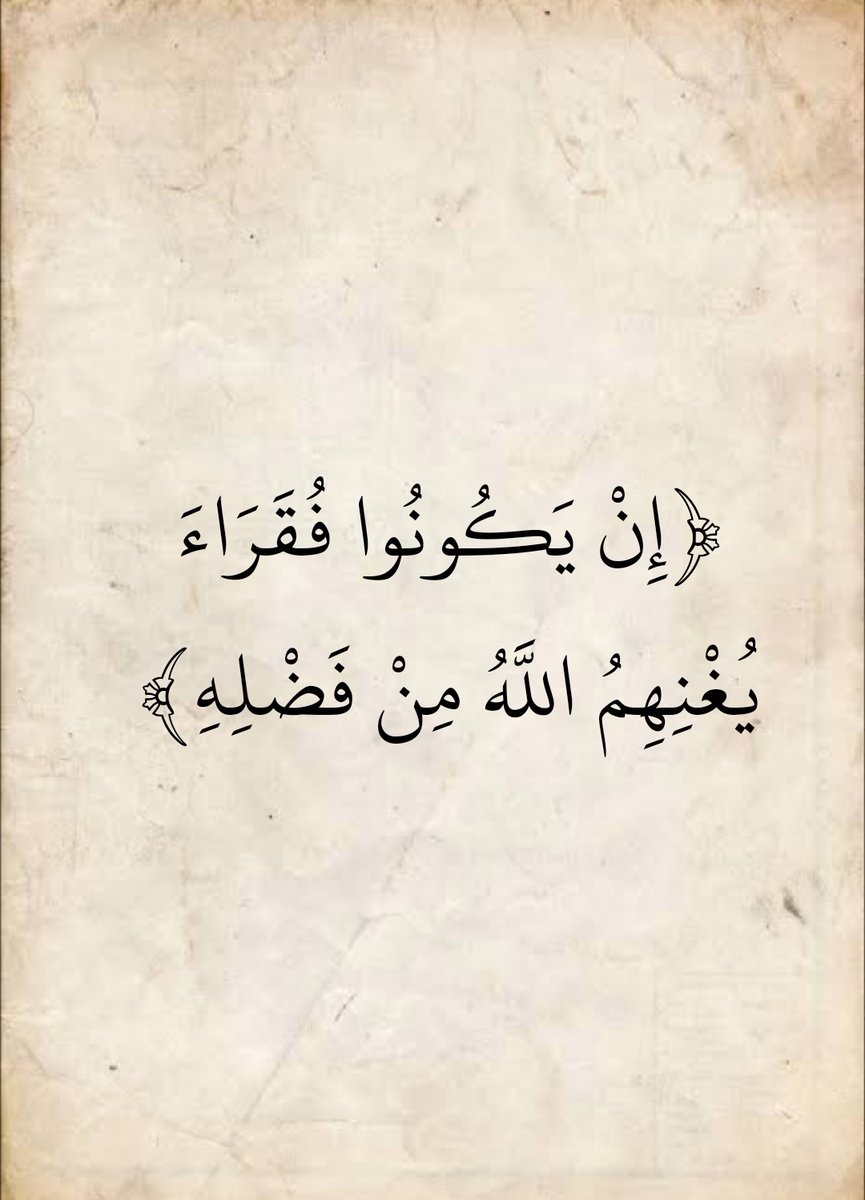 ﴿إِنْ يَكُونُوا فُقَرَاءَ
يُغْنِهِمُ اللَّهُ مِنْ فَضْلِهِ﴾